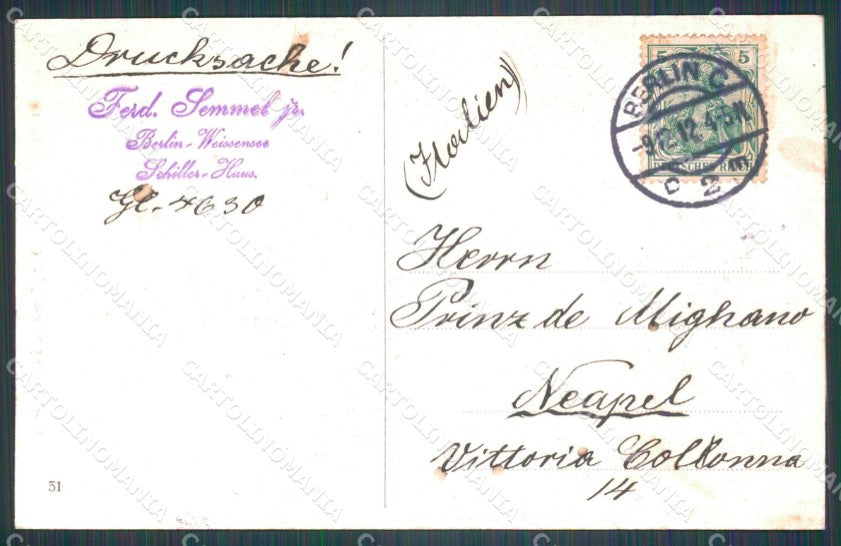 Drucksache!
Ferd. Semmel jr.
Berlin-Weissensee
Schiller-Haus.
Gl. 4630
31
(Italien)
5 5
DEUTSCHES REICH
BERLIN C
-9.12.12.4-5N.
2
Herrn
Prinz de Mighano
Neapel
Vittoria Collonna
14
CARTOLINOMANIA